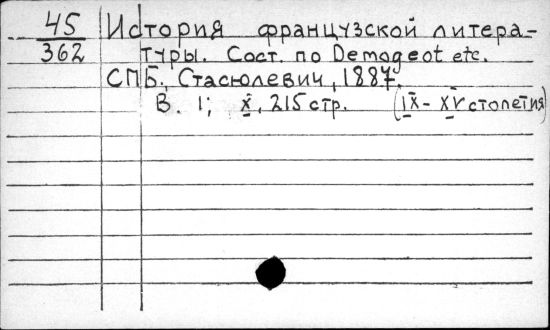 45 История французской литера-
362 туры. Сост. по Demogeot etc.
СПБ, Стасюлевич, 1887.
В. 1; X, 215 стр. (IX - XV столетия)